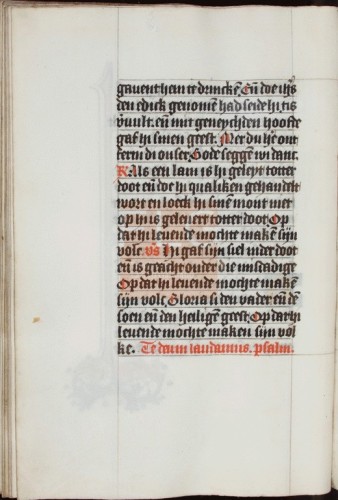 gauent hem te drincke͂. En͂ doe ih͂s
den edick genome͂ had seide hi. tis
v͂uult. en͂ mit geneychden hoofde
gaf hi sinen geest. Mer du h͂e ont
ferm di onser. Gode segge͂ wi danc.
R. Als een lam is hi geleyt totter
doot en͂ doe hi qualiken gehandelt
wort en loeck hi sine͂ mont niet
op hi is geleuert totter doot. Op
dat hi leuende mochte make͂ sijn
volc. vs Hi gaf sijn siel inder doot
en͂ is geacht onder die misdadige
Op dat hi leuende mochte make͂
sijn volc. Gloria si den vader en͂ de͂
soen en͂ den heilige͂ geest. Op dat hi
leuende mochte maken sijn vol
ke. Te deum laudamus. psalm.